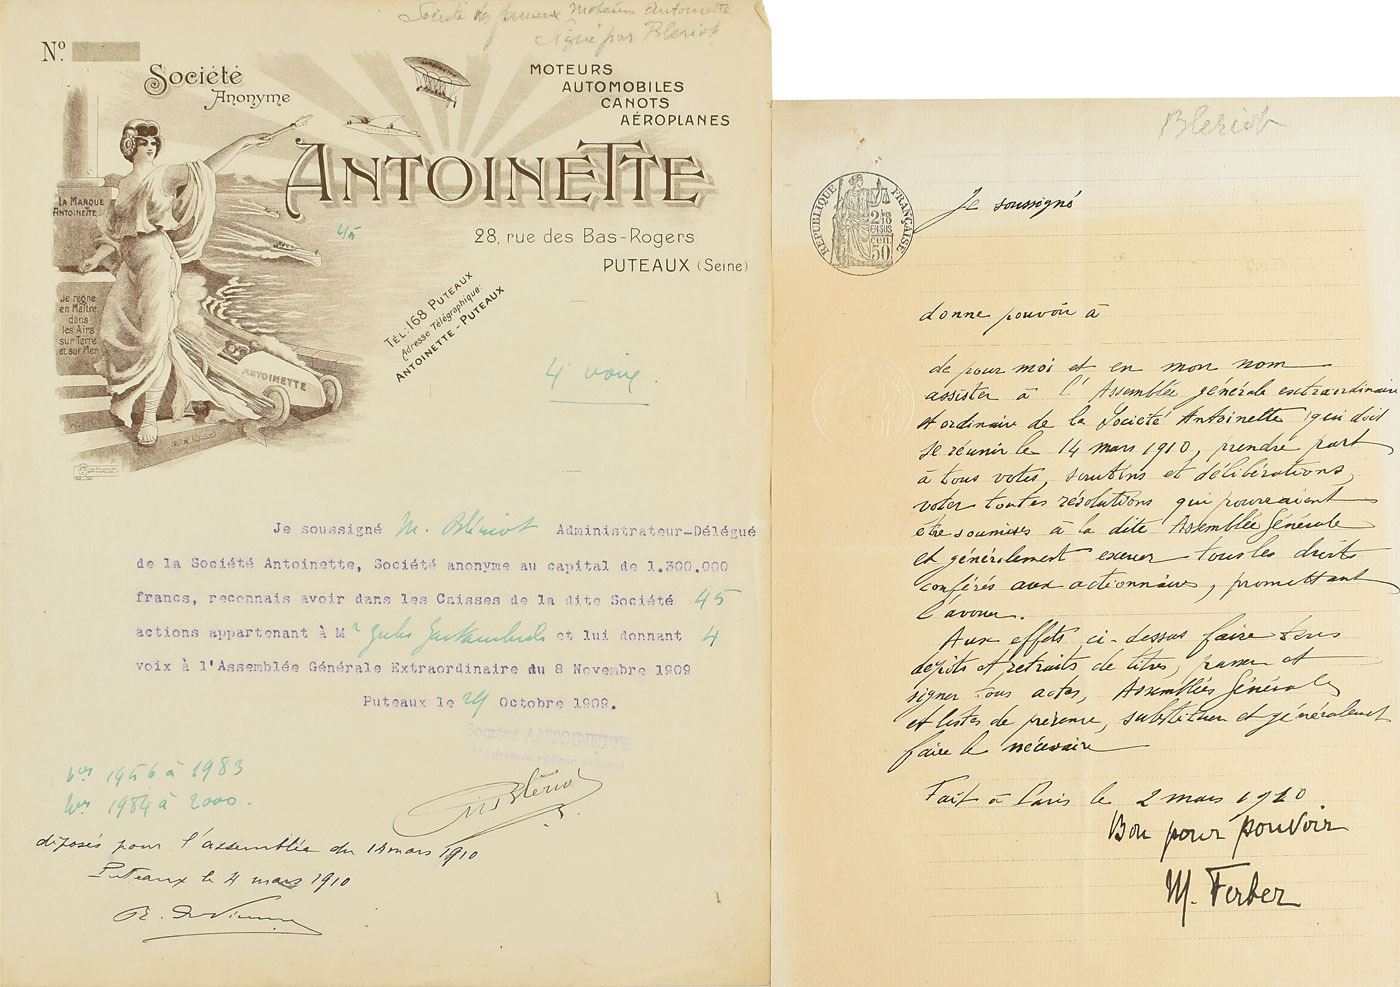 Société des fameux Moteurs Antoinette
Signé par Bleriot
N°.
Société
Anonyme
MOTEURS
AUTOMOBILES
CANOTS
AÉROPLANES
ANTOINETTE
28, rue des Bas-Rogers
PUTEAUX (Seine)
TÉL: 168 PUTEAUX
Adresse Télégraphique:
ANTOINETTE - PUTEAUX
LA MARQUE
ANTOINETTE
Je règne
en Maître
dans
les Airs
sur Terre
et sur Mer
ANTOINETTE
45
4 voix.
Je soussigné M. Blériot Administrateur-Délégué
de la Société Antoinette, Société anonyme au capital de 1.300.000
francs, reconnais avoir dans les Caisses de la dite Société 45
actions appartenant à Mr Jules et lui donnant 4
voix à l'Assemblée Générale Extraordinaire du 8 Novembre 1909
Puteaux le 29 Octobre 1909.
Société ANTOINETTE
L'Administrateur délégué
Blériot
Nos 1956 à 1983
Nos 1984 à 2000.
déposés pour l'assemblée du 14 mars 1910
Puteaux le 4 mars 1910
Bleriot
RÉPUBLIQUE FRANÇAISE
2/10
EN SUS
50 cen
Je soussigné
donne pouvoir à
de pour moi et en mon nom
assister à l'Assemblée générale extraordinaire
et ordinaire de la Société Antoinette qui doit
se réunir le 14 mars 1910, prendre part
à tous votes, scrutins et délibérations,
voter toutes résolutions qui pourraient
être soumises à la dite Assemblée Générale
et généralement exercer tous les droits
conférés aux actionnaires, promettant
l'avouer.
Aux effets ci-dessus faire tous
dépôts et retraits de titres, passer et
signer tous actes, Assemblées Générales
et listes de présence, substituer et généralement
faire le nécessaire
Fait à Paris le 2 mars 1910
Bon pour pouvoir
M. Ferber